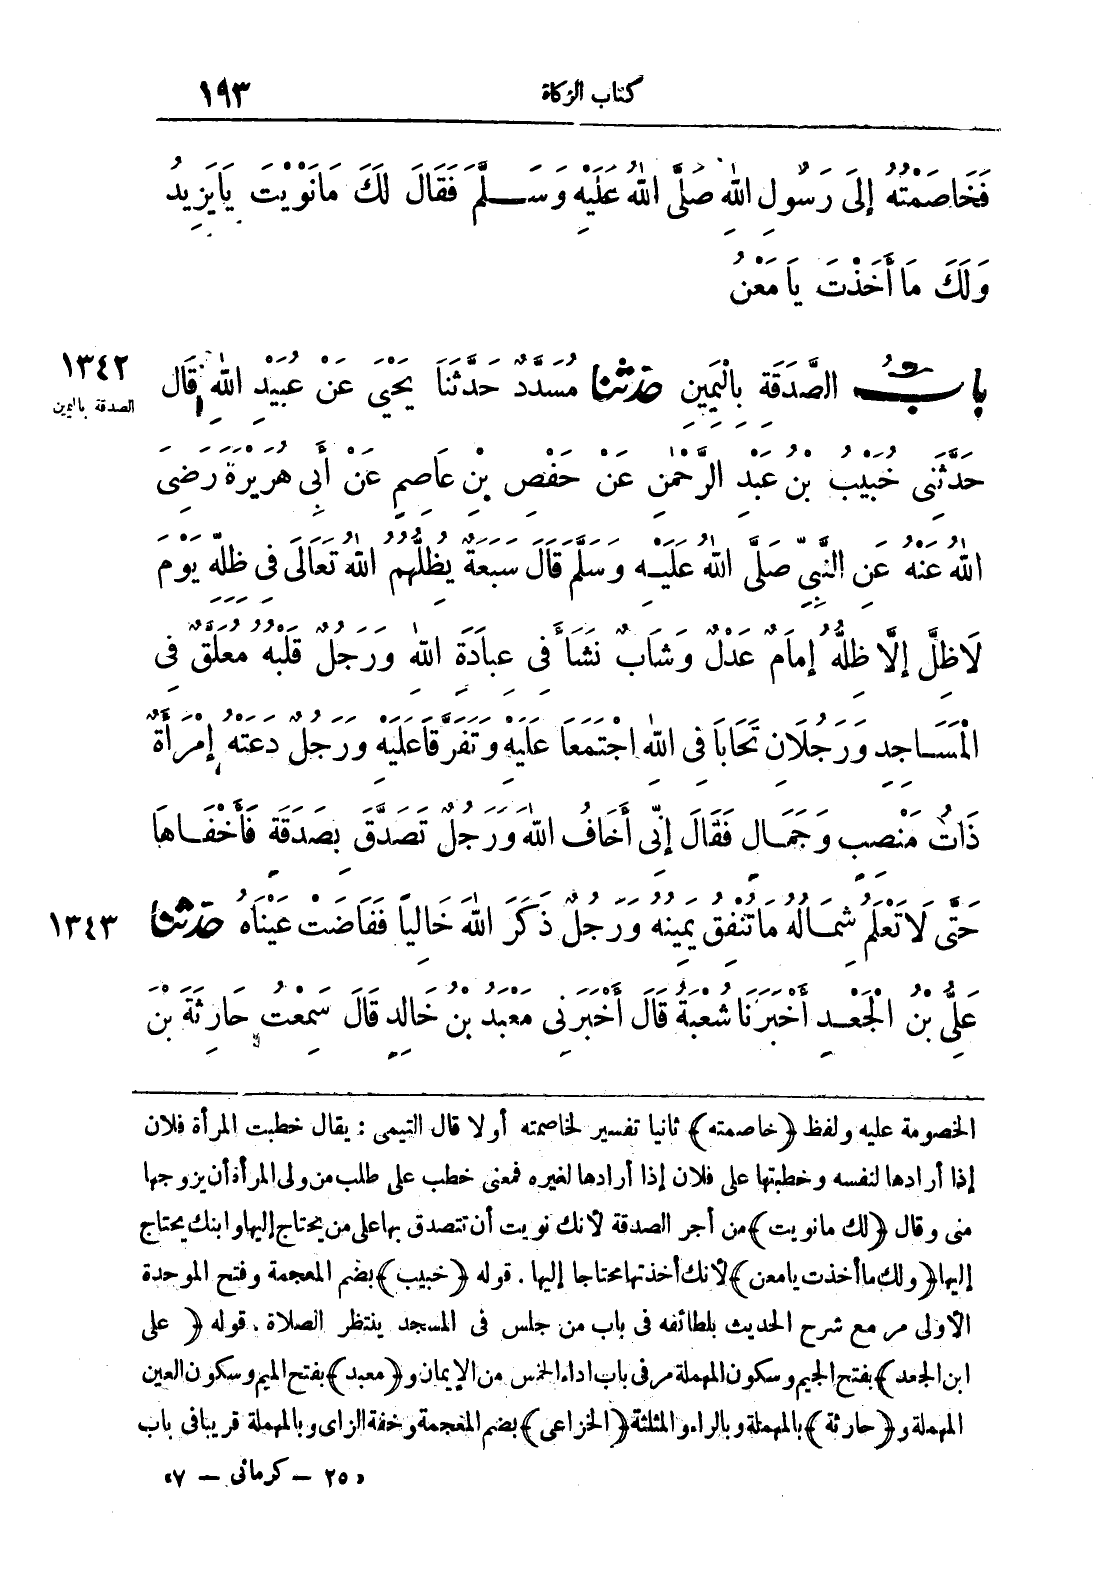 كتاب الزكاة ١٩٣
فَخَاصَمْتُهُ إِلَى رَسُولِ اللهِ صَلَّى اللهُ عَلَيْهِ وَسَـــلَّمَ فَقَالَ لَكَ مَا نَوَيْتَ يَا يَزِيدُ
وَلَكَ مَا أَخَذْتَ يَا مَعْنُ
بابُ الصَّدَقَةِ بِالْيَمِينِ حَدَّثَنَا مُسَدَّدٌ حَدَّثَنَا يَحْيَى عَنْ عُبَيْدِ اللهِ قَالَ
١٣٤٢
الصدقة باليمين
حَدَّثَنِى خُبَيْبُ بْنُ عَبْدِ الرَّحْمٰنِ عَنْ حَفْصِ بْنِ عَاصِمٍ عَنْ أَبِى هُرَيْرَةَ رَضِىَ
اللهُ عَنْهُ عَنِ النَّبِىِّ صَلَّى اللهُ عَلَيْـهِ وَسَلَّمَ قَالَ سَبْعَةٌ يُظِلُّهُمُ اللهُ تَعَالَى فِى ظِلِّهِ يَوْمَ
لَا ظِلَّ إِلَّا ظِلُّهُ إِمَامٌ عَدْلٌ وَشَابٌّ نَشَأَ فِى عِبَادَةِ اللهِ وَرَجُلٌ قَلْبُهُ مُعَلَّقٌ فِى
الْمَسَـاجِدِ وَرَجُلَانِ تَحَابَّا فِى اللهِ اجْتَمَعَا عَلَيْهِ وَتَفَرَّقَا عَلَيْهِ وَرَجُلٌ دَعَتْهُ إِمْرَأَةٌ
ذَاتُ مَنْصِبٍ وَجَمَـالٍ فَقَالَ إِنِّى أَخَافُ اللهَ وَرَجُلٌ تَصَدَّقَ بِصَدَقَةٍ فَأَخْفَـاهَا
حَتَّى لَا تَعْلَمَ شِمَـالُهُ مَا تُنْفِقُ يَمِينُهُ وَرَجُلٌ ذَكَرَ اللهَ خَالِياً فَفَاضَتْ عَيْنَاهُ حَدَّثَنَا
١٣٤٣
عَلِىُّ بْنُ الْجَعْـدِ أَخْبَرَنَا شُعْبَةُ قَالَ أَخْبَرَنِى مَعْبَدُ بْنُ خَالِدٍ قَالَ سَمِعْتُ حَارِثَةَ بْنَ
الخصومة عليه ولفظ ﴿خاصمته﴾ ثانيا تفسير لخاصمته أولا قال التيمى : يقال خطبت المرأة فلان
إذا أرادها لنفسه وخطبتها على فلان إذا أرادها لغيره فمعنى خطب على طلب من ولى المرأة أن يزوجها
منى وقال ﴿لك ما نويت﴾ من أجر الصدقة لأنك نويت أن تتصدق بها على من يحتاج إليها وابنك يحتاج
إليها ﴿ولك ما أخذت يا معن﴾ لأنك أخذتها محتاجا إليها . قوله ﴿خبيب﴾ بضم المعجمة وفتح الموحدة
الأولى مر مع شرح الحديث بلطائفه فى باب من جلس فى المسجد ينتظر الصلاة . قوله ﴿ على
ابن الجعد ﴾ بفتح الجيم وسكون المهملة مر فى باب اداء الخمس من الإيمان و﴿معبد﴾ بفتح الميم وسكون العين
المهملة و﴿حارثة﴾ بالمهملة وبالراء والمثلثة ﴿الخزاعى﴾ بضم المعجمة وخفة الزاى وبالمهملة قريبا فى باب
«٢٥ – كرمانى – ٧»